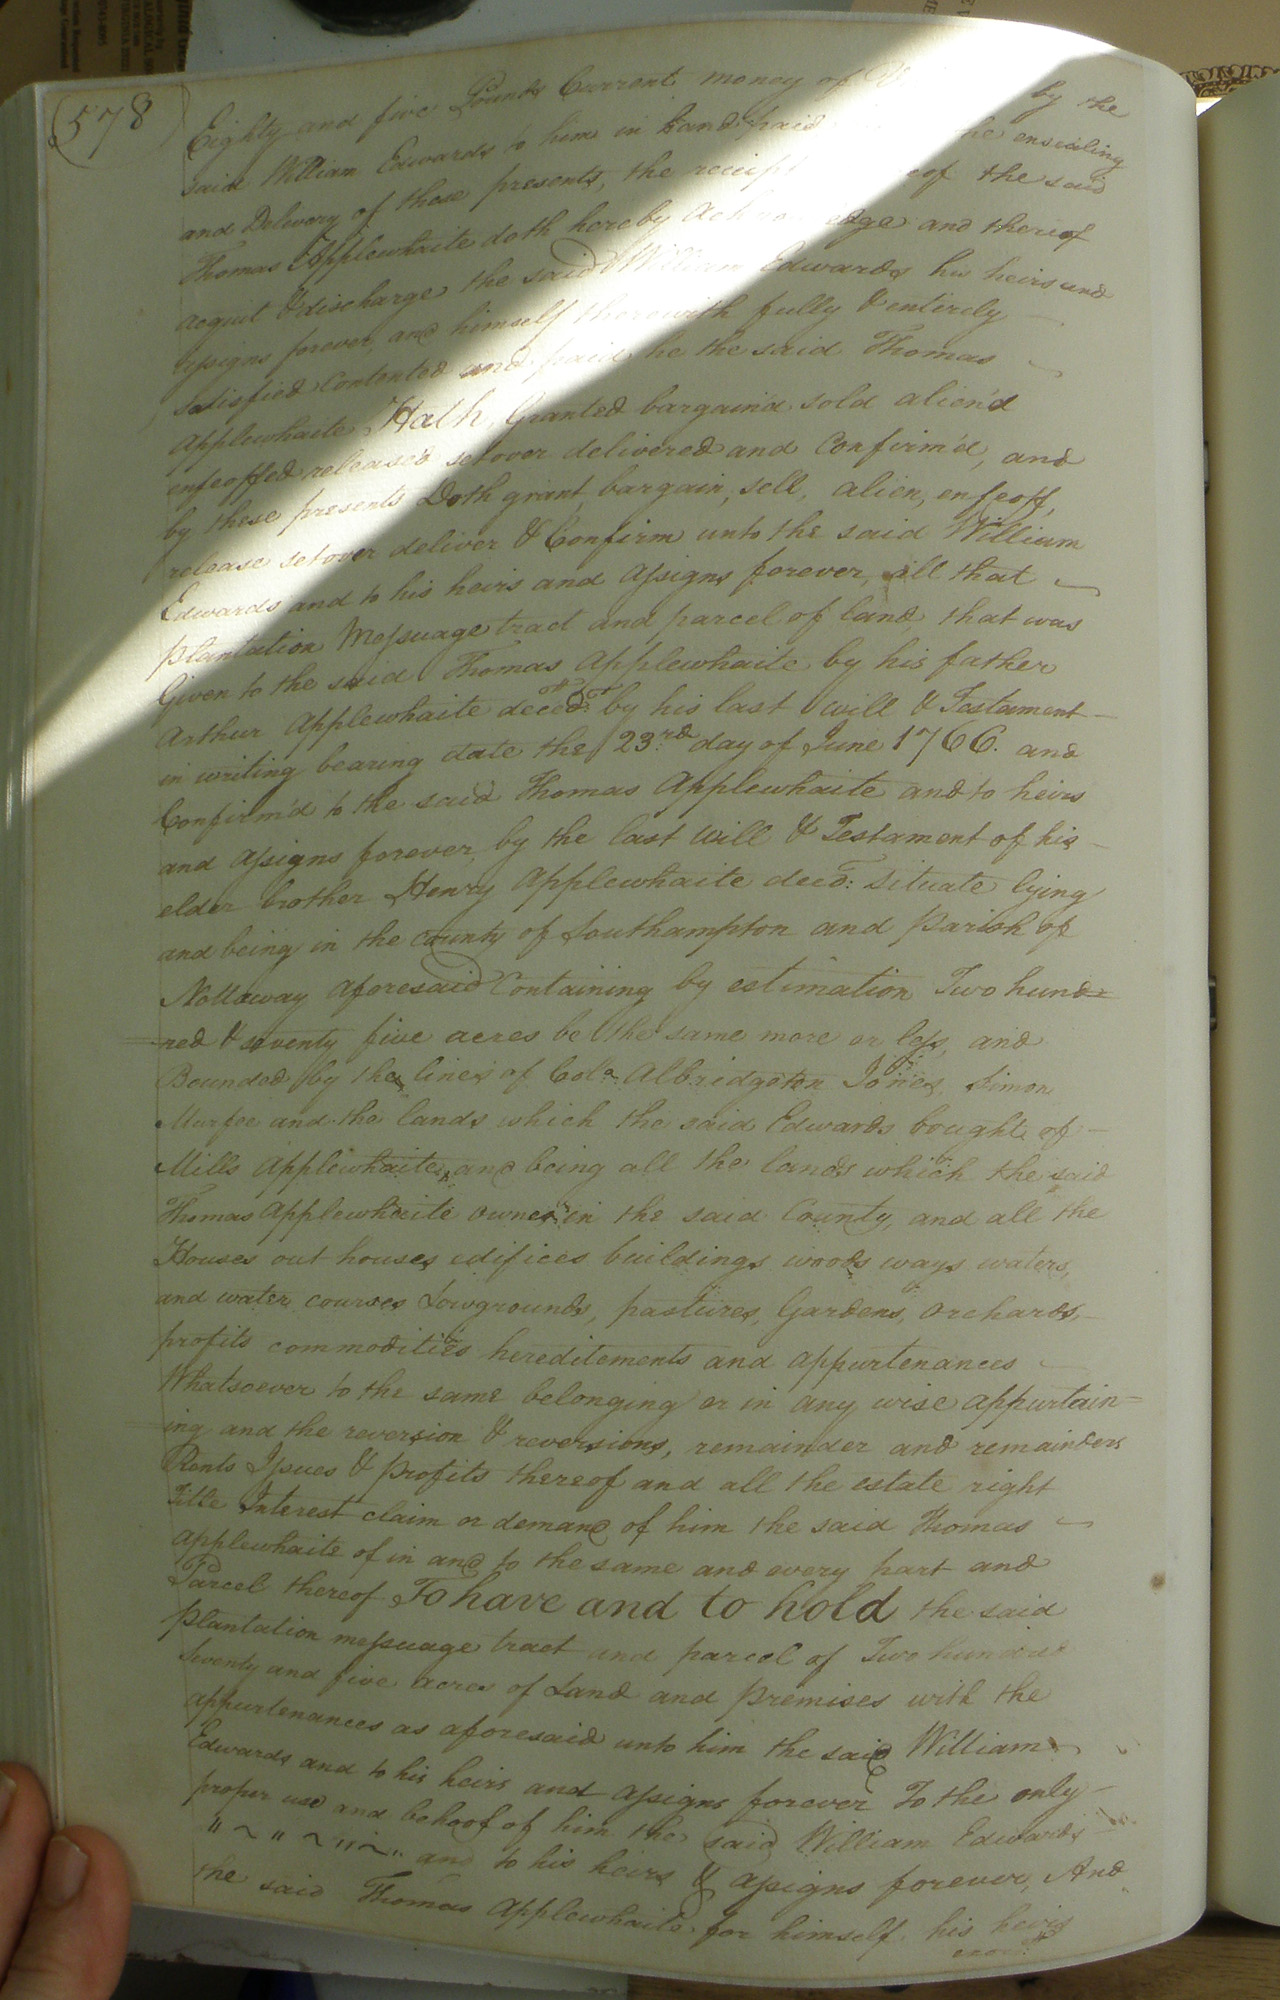 (578)
Eighty and five Pounds Current money of by the
said William Edwards to him in hand paid the ensealing
and Delivery of these presents, the receipt eof the said
Thomas Applewhaite doth hereby Acknowledge and thereof
acquit & discharge the said William Edwards his heirs and
assigns forever, and himself therewith fully & entirely
satisfied contented and paid, he the said Thomas
Applewhaite Hath Granted bargain'd sold alien'd
enfeoffed releas'd setover delivered and Confirm'd, and
by these presents Doth grant, bargain, sell, alien, enfeoff,
release setover deliver & Confirm unto the said William
Edwards and to his heirs and assigns forever, all that
plantation Messuage tract and parcel of land, that was
Given to the said Thomas Applewhaite by his father
Arthur Applewhaite decd. by his last will & Testament
in writing bearing date the 23rd day of June 1766. and
Confirm'd to the said Thomas Applewhaite and to heirs
and assigns forever, by the last Will & Testament of his
elder brother Henry Applewhaite decd: Situate lying
and being in the county of Southampton and Parish of
Nottaway aforesaid Containing by estimation Two hund=
=red & seventy five acres be the same more or less, and
Bounded by the lines of Colo. Albridgeton Jones, Simon
Murfee and the lands which the said Edwards bought of
Mills Applewhaite, and being all the lands which the said
Thomas Applewhaite ownes in the said County, and all the
Houses out houses edifices buildings woods ways waters,
and water courses Lowgrounds, pastures, Gardens, orchards,
profits commodities hereditements and appurtenances
Whatsoever to the same belonging or in any wise appurtain=
ing and the reversion & reversions, remainder and remainders
Rents Issues & profits thereof and all the estate right
Title Interest claim or demand of him the said Thomas
Applewhaite of in and to the same and every part and
Parcel thereof To have and to hold the said
plantation messuage tract and parcel of Two hundred
Seventy and five acres of Land and premises with the
appurtenances as aforesaid unto him the said William
Edwards and to his heirs and assigns forever To the only
proper use and behoof of him the said William Edwards
" ~ " ~ " ~ " and to his heirs & assigns forever, And
the said Thomas Applewhaite for himself his heirs